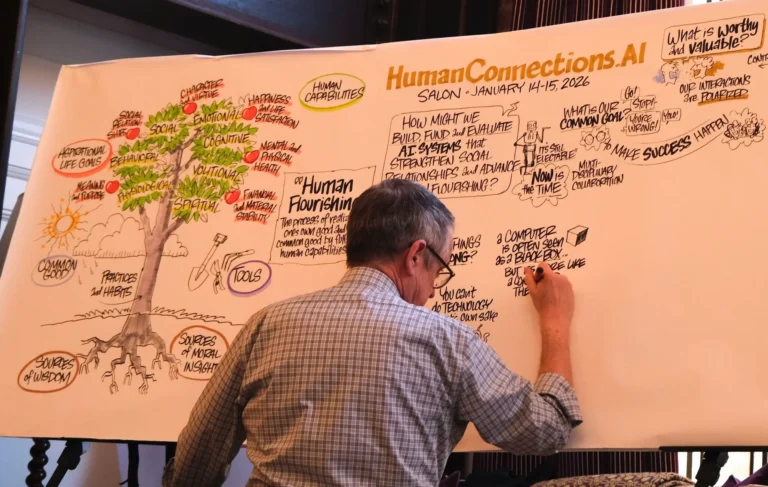 HUMAN
CAPABILITIES
CHARACTER
and VIRTUE
SOCIAL
RELATION
SHIPS
HAPPINESS
and LIFE
SATISFACTION
ASPIRATIONAL
LIFE GOALS
SOCIAL
EMOTIONAL
COGNITIVE
BEHAVIORAL
MENTAL and
PHYSICAL
HEALTH
VOLITIONAL
MEANING and
PURPOSE
PHYSIOLOGICAL
SPIRITUAL
FINANCIAL
and MATERIAL
STABILITY
COMMON
GOOD
TOOLS
PRACTICES
and HABITS
SOURCES
of WISDOM
SOURCES
of MORAL
INSIGHT
"Human
Flourishing
THE PROCESS OF
ONE'S OWN GOOD and
COMMON GOOD BY
HUMAN
HumanConnections.AI
SALON - JANUARY 14-15, 2026
HOW MIGHT WE
BUILD, FUND and EVALUATE
AI SYSTEMS that
STRENGTHEN SOCIAL
RELATIONSHIPS and ADVANCE
FLOURISHING?
IT'S STILL
NOW IS
the TIME
MULTI-
DISCIPLINARY
COLLABORATION
WHAT IS OUR
COMMON GOAL?
GO!
STOP!
YOU'RE
WRONG!
YOU!
to MAKE SUCCESS HAPPEN
WHAT IS WORTHY
and VALUABLE?
OUR INTERACTIONS
are POLARIZED
THINGS
YOU CAN'T
do TECHNOLOGY
OWN SAKE
a COMPUTER
IS OFTEN SEEN
as a BLACK BOX...
BUT
LIKE